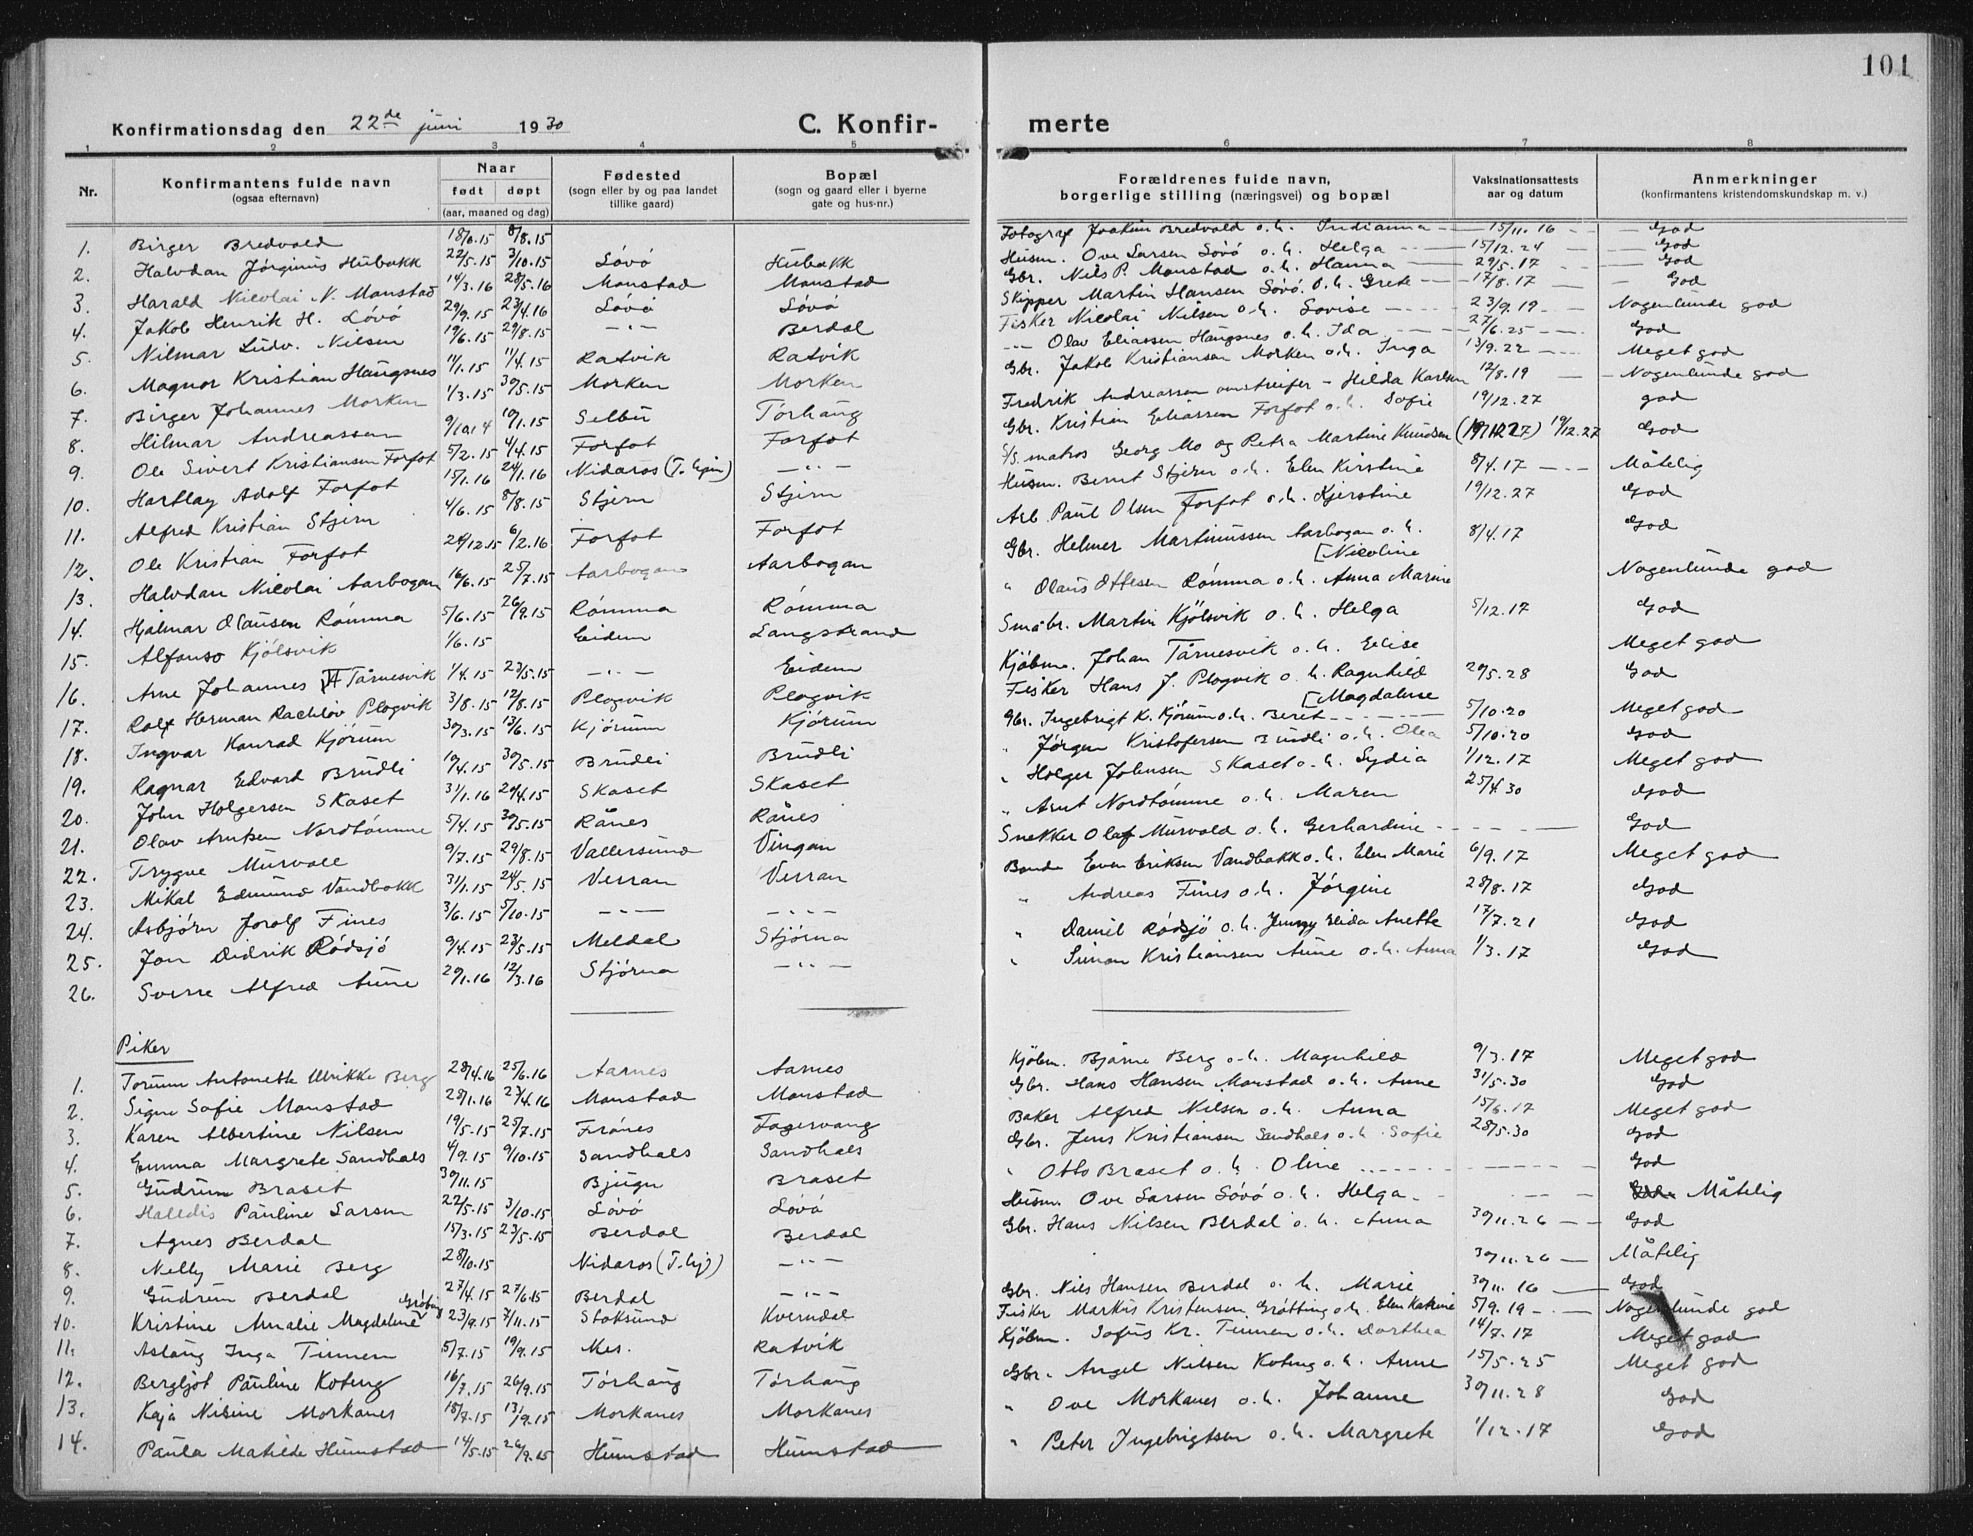 101
Konfirmationsdag den 22de juni 1930 C. Konfir- merte
1 2 3 4 5 6 7 8
Nr. Konfirmantens fulde navn (ogsaa efternavn) Naar født døpt (aar, maaned og dag) Fødested (sogn eller by og paa landet tillike gaard) Bopæl (sogn og gaard eller i byerne gate og hus-nr.) Forældrenes fulde navn, borgerlige stilling (næringsvei) og bopæl Vaksinationsattests aar og datum Anmerkninger (konfirmantens kristendomskundskap m. v.)
1. Birger Bredvold 18/6.15 8/8.15 Fotograf Joakim Bredvold o.h. Indianna 15/11.16 God
2. Halvdan Jørginus Hübakk 22/5.15 3/10.15 Løvø Hübakk Husm. Ove Larsen Løvø o.h. Helga 15/12.24 God
3. Harald Nicolai N. Monstad 14/3.16 28/5.16 Monstad Monstad Gbr. Nils P. Monstad o.h. Hanna 29/5.17 God
4. Jakob Henrik H. Løvø 29/9.15 23/4.16 Løvø Løvø Skipper Martin Hansen Løvø o.h. Grete 17/8.17 God
5. Nilmar Ludv. Nilsen 19/6.15 29/8.15 — " — Berdal Fisker Nicolai Nilsen o.h. Lovise 23/9.19 Nogenlunde god
6. Magnor Kristian Haugsnes 11/1.15 11/4.15 Ratvik Ratvik — " — Olav Eliassen Haugsnes o.h. Ida 27/6.25 God
7. Birger Johannes Morken 1/3.15 30/5.15 Morken Morken Gbr. Jakob Kristiansen Morken o.h. Inga 13/9.22 Meget god
8. Hilmar Andreassen 9/10.14 10/1.15 Selbu Tørhaug Fredrik Andreassen omstreifer - Hilda Karlsen 12/8.19 Nogenlunde god
9. Ole Sivert Kristiansen Forfot 5/2.15 4/4.15 Forfot Forfot Gbr. Kristian Eliassen Forfot o.h. Sofie 19/12.27 god
10. Hartlag Adolf Forfot 15/1.16 24/1.16 Nidaros (T.hjem) — " — S/S. matros Georg Mo og Petra Martine Knudsen (19/12.27) 19/12.27 God
11. Alfred Kristian Stjern 4/6.15 8/8.15 Stjern Stjern Husm. Bernt Stjern o.h. Elen Kirstine 8/4.17 Måtelig
12. Ole Kristian Forfot 24/12.15 6/2.16 Forfot Forfot Arb. Paul Olsen Forfot o.h. Kjerstine 19/12.27 God
13. Halvdan Nicolai Aarbogan 16/6.15 25/7.15 Aarbogan Aarbogan Gbr. Helmer Martinussen Aarbogan o.h. [Nicoline 8/4.17 God
14. Hjalmar Olausen Rømma 5/6.15 26/9.15 Rømma Rømma " Olaus Ottesen Rømma o.h. Anna Marine Nogenlunde god
15. Alfonso Kjølsvik 1/6.15 Eidem Langstrand Småbr. Martin Kjølsvik o.h. Helga 5/12.17 God
16. Arne Johannes Tårnesvik 1/4.15 23/5.15 — " — Eidem Kjøbm. Johan Tårnesvik o.h. Elise Meget god
17. Rolf Herman Rachløv Plogvik 3/8.15 12/8.15 Plogvik Plogvik Fisker Hans J. Plogvik o.h. Ragnhild [Magdalene 29/5.28 God
18. Ingvar Konrad Kjørum 30/3.15 13/6.15 Kjørum Kjørum Gbr. Ingebrigt K. Kjørum o.h. Beret 5/10.20 Meget god
19. Ragnar Edvard Brudli 10/4.15 30/5.15 Brudli Brudli " Jørgen Kristofersen Brudli o.h. Olea 5/10.20 God
20. John Holgersen Skaset 31/1.16 24/4.15 Skaset Skaset " Holger Johnsen Skaset o.h. Lydia 1/12.17 Meget god
21. Olav Arntsen Nordtømme 5/4.15 30/5.15 Rånes Rånes " Arnt Nordtømme o.h. Maren 25/4.30 God
22. Trygve Murvold 9/7.15 29/8.15 Vallersund Vingan Snekker Olaf Murvold o.h. Gerhardine God
23. Mikal Edmund Vandbakk 31/1.15 24/5.15 Verran Verran Bonde Even Eriksen Vandbakk o.h. Elen Marie 6/9.17 Meget god
24. Asbjørn Jorolf Fines 3/6.15 5/10.15 — " — — " — " Andreas Fines o.h. Jørgine 28/8.17 God
25. Jon Didrik Rødsjø 9/4.15 23/5.15 Meldal Stjørna " Daniel Rødsjø o.h. Jenny Elida Anette 17/7.21 God
26. Sverre Alfred Aune 29/1.16 12/3.16 Stjørna — " — " Simon Kristiansen Aune o.h. Anna 1/3.17 God
Piker
1. Torunn Antonette Ulrikke Berg 28/4.16 25/6.16 Aarnes Aarnes Kjøbm. Bjarne Berg o.h. Magnhild 9/3.17 Meget god
2. Signe Sofie Monstad 28/1.16 27/4.16 Monstad Monstad Gbr. Hans Hansen Monstad o.h. Anne 31/5.30 God
3. Karen Albertine Nilsen 19/5.15 25/7.15 Frånes Fagervang Baker Alfred Nilsen o.h. Anna 15/6.17 Meget god
4. Emma Margrete Sandhals 4/9.15 9/10.15 Sandhals Sandhals Gbr. Jens Kristiansen Sandhals o.h. Sofie 28/5.30 God
5. Gudrun Braset 30/11.15 Bjugn Braset " Otto Braset o.h. Oline God
6. Halldis Pauline Larsen 22/5.15 3/10.15 Løvø Løvø Husm. Ove Larsen Løvø o.h. Helga Måtelig
7. Agnes Berdal 15/3.15 23/5.15 Berdal Berdal Gbr. Hans Nilsen Berdal o.h. Anna 30/11.26 God
8. Nelly Marie Berg 28/10.15 Nidaros (T.hj) — " — 30/11.26 Måtelig
9. Gudrun Berdal 27/4.15 27/6.15 Berdal — " — Gbr. Nils Hansen Berdal o.h. Marie 30/11.16 God
10. Kristine Amalie Magdalene Grøtting 23/9.15 7/11.15 Stoksund Kverndal Fisker Markus Kristensen Grøtting o.h. Elen Katrine 5/9.19 Nogenlunde god
11. Aslaug Inga Tinnen 5/7.15 19/9.15 Nes. Ratvik Kjøbm. Sofus Kr. Tinnen o.h. Dorthea 14/7.17 Meget god
12. Bergljot Pauline Koteng 16/7.15 26/9.15 Tørhaug Tørhaug Gbr. Angel Nilsen Koteng o.h. Anne 15/5.25 Meget god
13. Kaja Nisine Morkanes 18/7.15 13/9.15 Morkanes Morkanes " Ove Morkanes o.h. Johanne 30/11.28 God
14. Paula Matilde Humstad 14/5.15 26/9.15 Humstad Humstad " Peter Ingebrigtsen o.h. Margrete 1/12.17 God